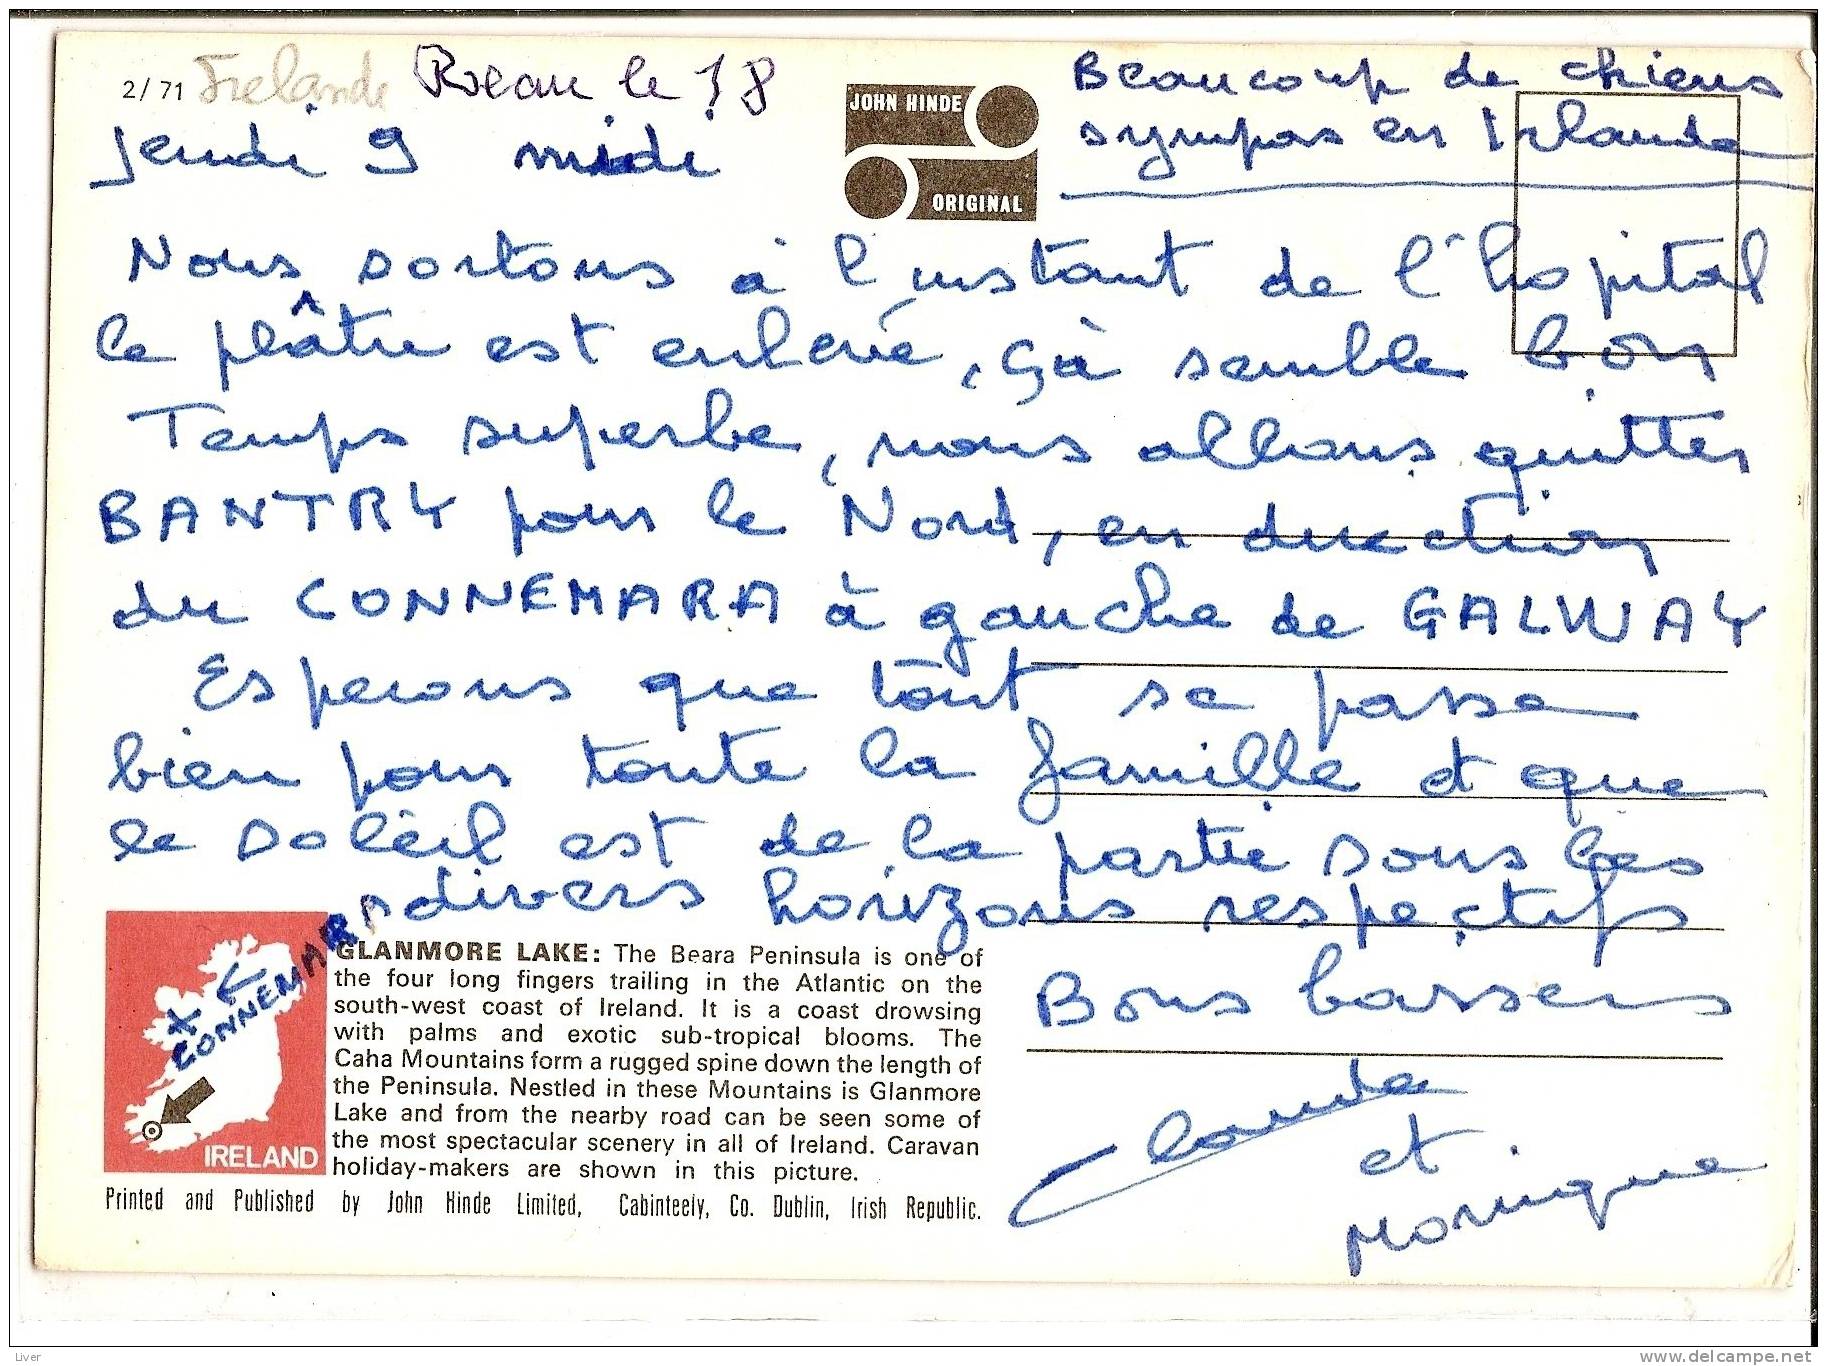 2/ 71 Irlande
Reçu le 18
Jeudi 9 midi
JOHN HINDE
ORIGINAL
Beaucoup de chiens
sympas en Irlande
Nous sortons à l'instant de l'hopital
le plâtre est enlevé, çà semble bon
Temps superbe, nous allons quitter
BANTRY pour le Nord, en direction
du CONNEMARA à gauche de GALWAY
Esperons que tout se passe
bien pour toute la famille et que
le soleil est de la partie sous les
divers horizons respectifs
CONNEMARA
IRELAND
GLANMORE LAKE: The Beara Peninsula is one of
the four long fingers trailing in the Atlantic on the
south-west coast of Ireland. It is a coast drowsing
with palms and exotic sub-tropical blooms. The
Caha Mountains form a rugged spine down the length of
the Peninsula. Nestled in these Mountains is Glanmore
Lake and from the nearby road can be seen some of
the most spectacular scenery in all of Ireland. Caravan
holiday-makers are shown in this picture.
Printed and Published by John Hinde Limited, Cabinteely, Co. Dublin, Irish Republic.
Bons baisers
Claude
et
Monique
Liver
www.delcampe.net